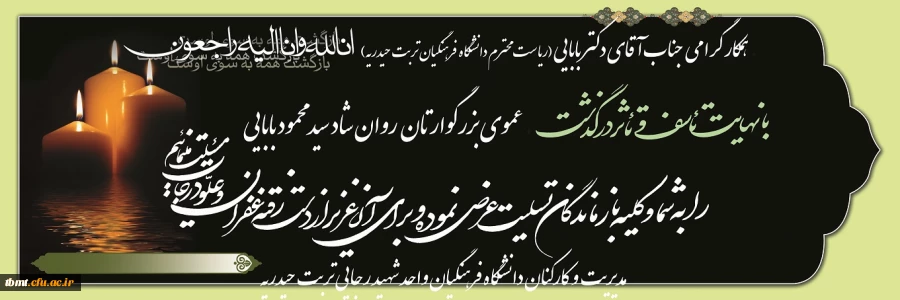 انالله وانا الیه راجعون
بازگشت همه به سوی اوست
همکار گرامی جناب آقای دکتر بابایی (ریاست محترم دانشگاه فرهنگیان تربت حیدریه)
با نهایت تأسف و تأثر درگذشت عموی بزرگوارتان روان شاد سید محمود بابایی
را به شما و کلیه بازماندگان تسلیت عرض نموده و برای آن عزیز از دست رفته غفران و علو درجات مسئلت می‌نمائیم
مدیریت و کارکنان دانشگاه فرهنگیان واحد شهید رجایی تربت حیدریه
tbmt.cfu.ac.ir